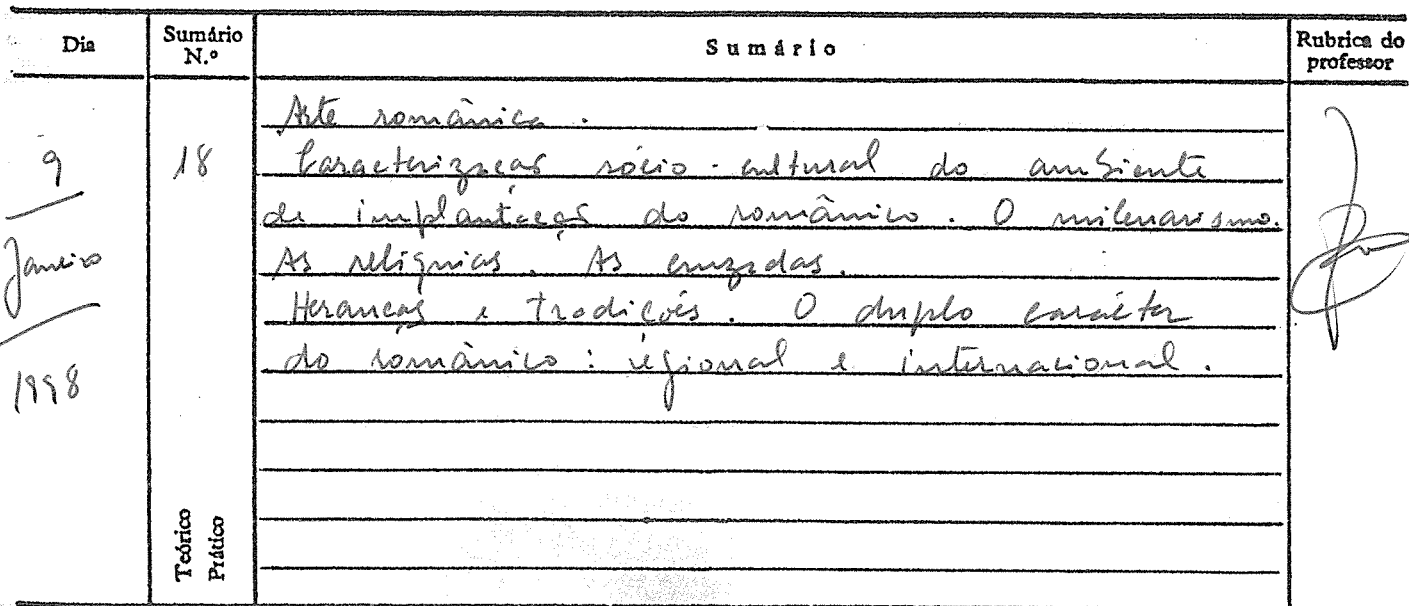 Dia Sumário N.º Sumário Rubrica do professor
9 Janeiro 1998
18
Arte românica.
Caracterização sócio-cultural do ambiente
de implantação do românico. O milenarismo.
As relíquias. As cruzadas.
Heranças e tradições. O duplo carácter
do românico: regional e internacional.
Teórico
Prático